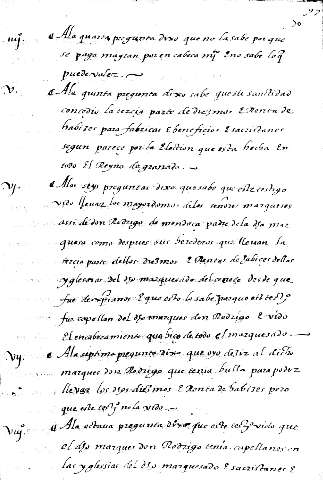 iiijº A la quarta pregunta dixo que no la sabe porque
se pago magcan por en cabeca mjº E no sabe lo q
puede valer.
V. A la quinta pregunta dixo sabe que su santidad
concedio la tercia parte de diezmos E Renta de
habizes para fabricas E beneficios E sacristanes
segun parece por la Election que esta hecha En
todo El Reyno de granada.
VJ. A las seys preguntas dixo que sabe que este testigo
vido llevar los mayordomos de los señores marqueses
assi de don Rodrigo de mendoca padre de la dha mar
quesa como despues sus herederos que llevan la
tercia parte de los diezmos E Rentas de habices de las
yglesias del dho marquesado del cenete desde que
fue de xpianos E que esto lo sabe porque este tº
fue capellan del dho marques don Rodrigo E vido
El encabezamiento que hizo de todo el marquesado.
Vij. A la septima pregunta dixo que oyo dezir al dicho
marques don Rodrigo que tenia bulla para poder
llevar los dhos diezmos E Renta de habizes pero
que este tº no la vido.
Viijº A la octava pregunta dixo que este tº vido que
el dho marques don Rodrigo tenia capellanes en
las yglesias del dho marquesado E sacristanes E